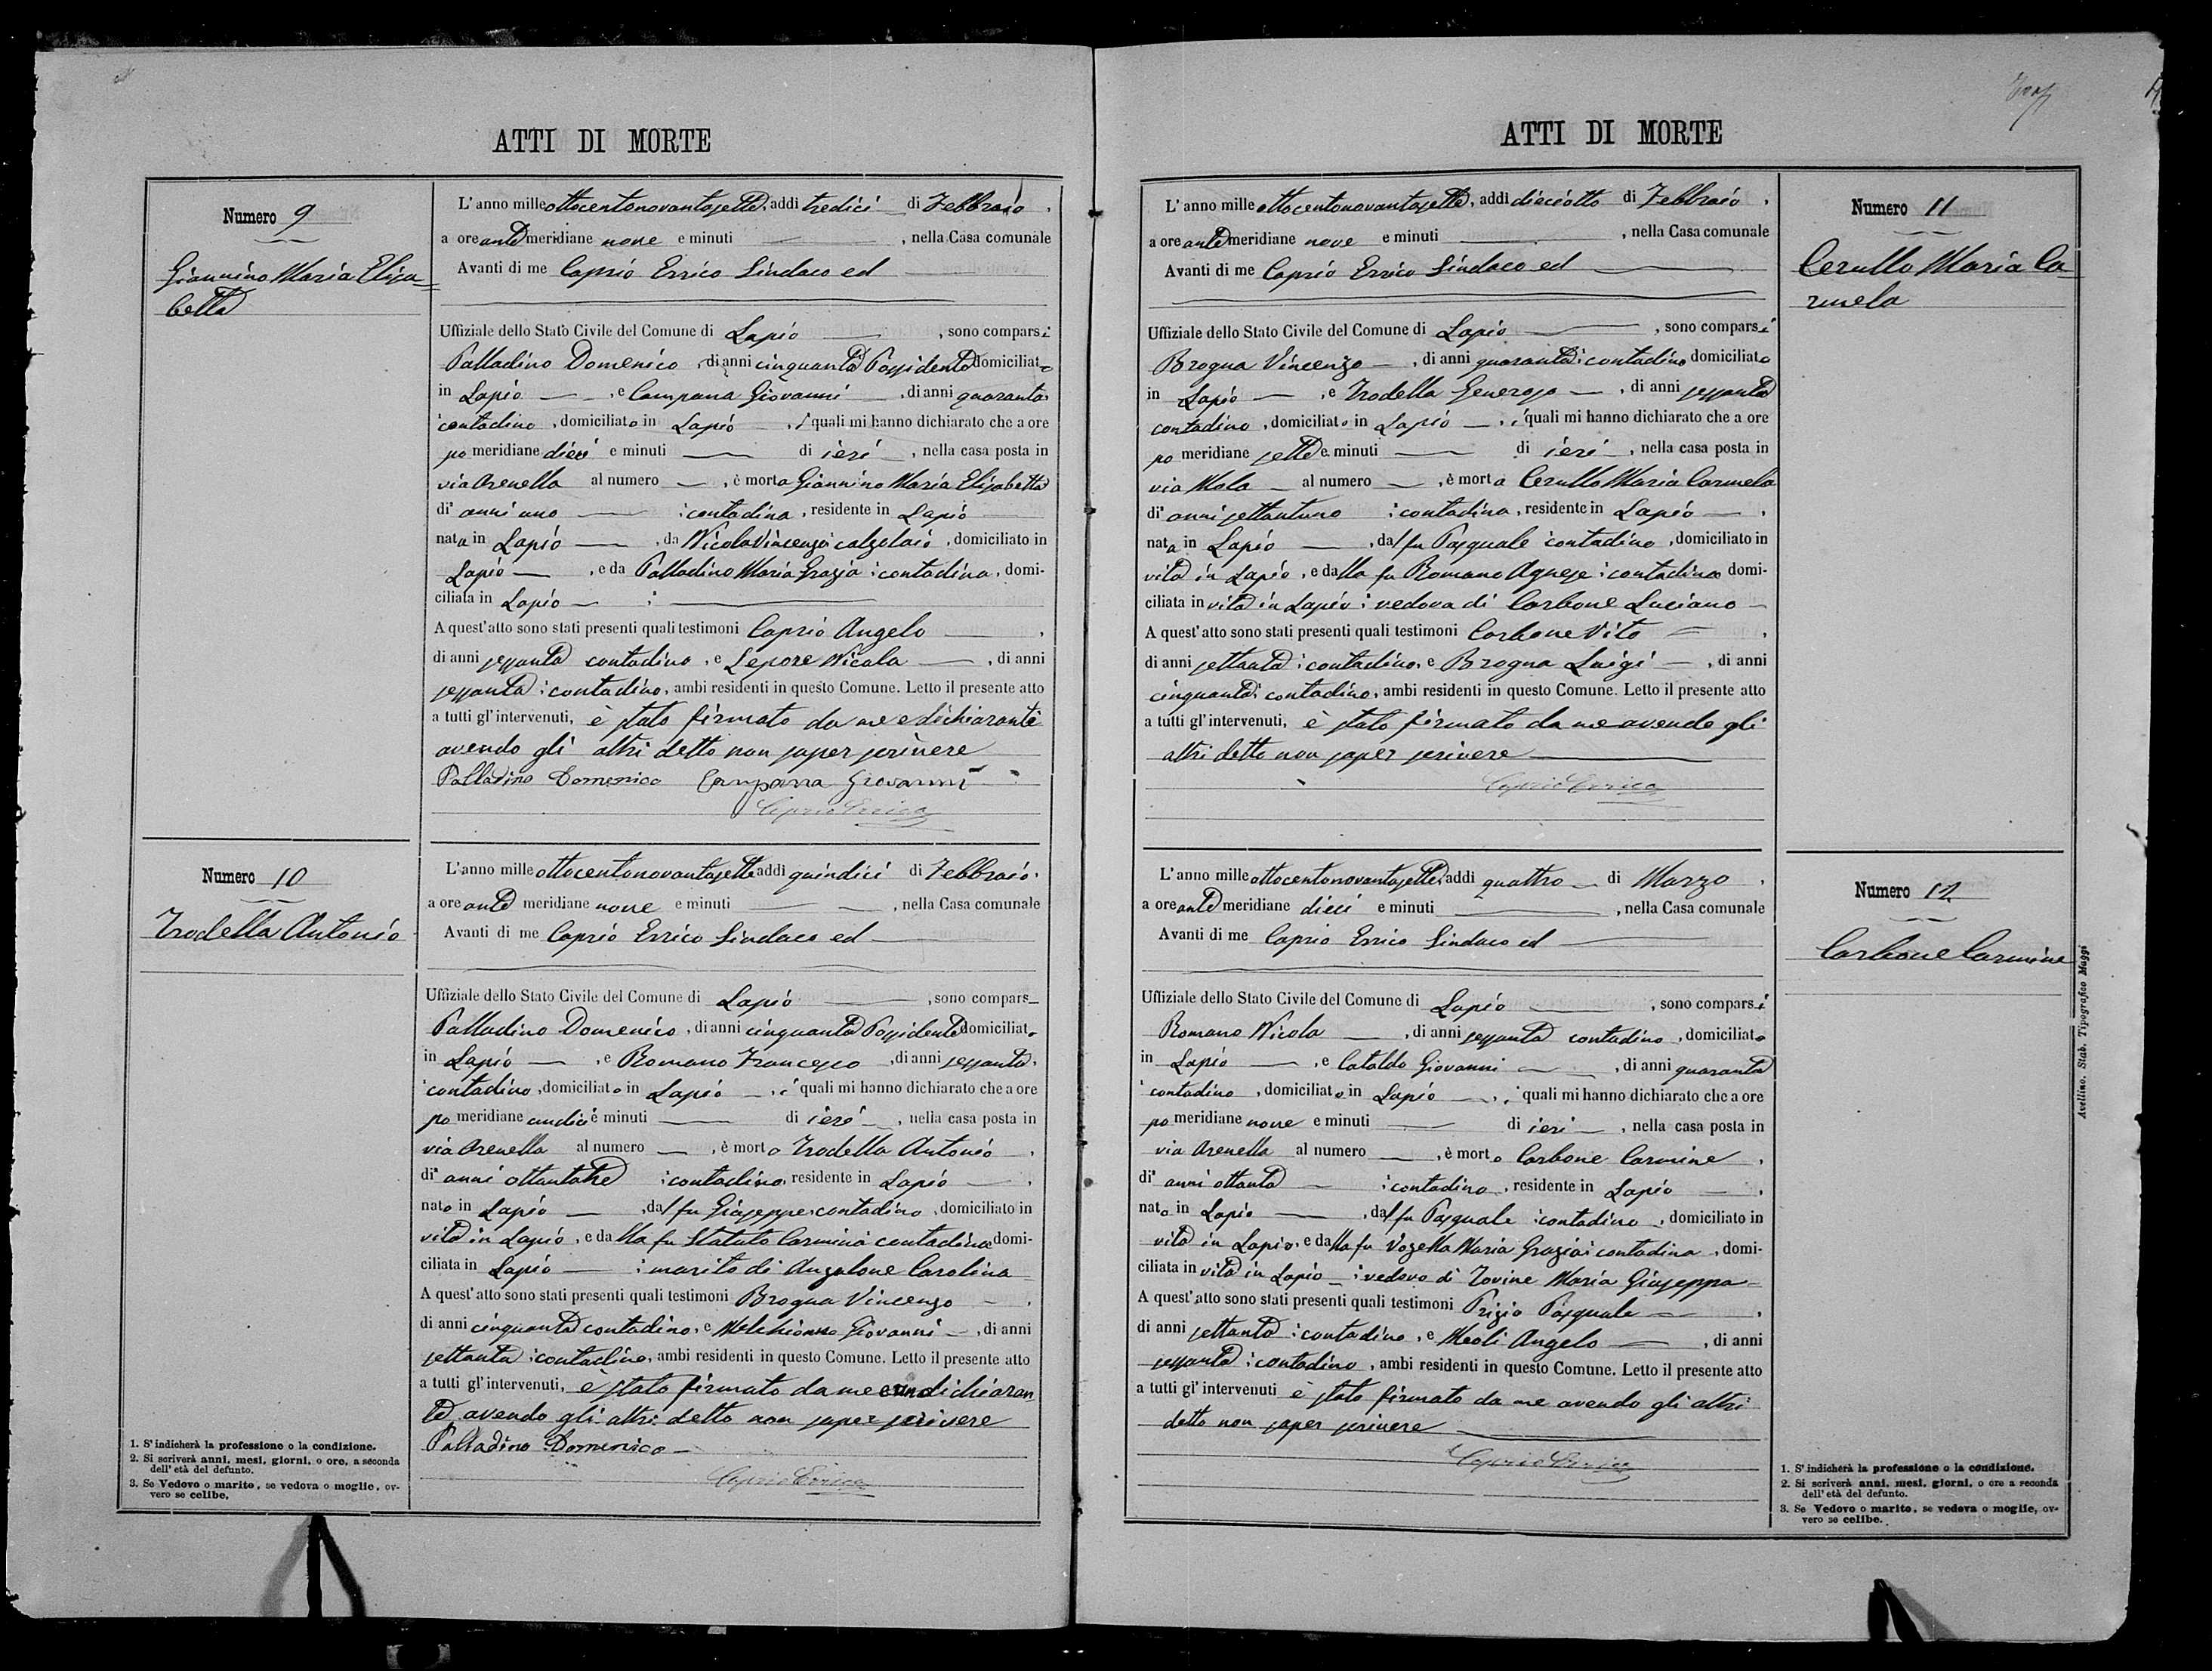 ATTI DI MORTE
Numero 9
Giannino Maria Elisa=
betta
L'anno milleottocentonovantasette, addì tredici di Febbraio,
a ore antemeridiane nove e minuti — , nella Casa comunale
Avanti di me Caprio Errico Sindaco ed
Uffiziale dello Stato Civile del Comune di Lapio — , sono comparsi
Palladino Domenico, di anni cinquanta Possidente domiciliato
in Lapio — , e Campana Giovanni , di anni quaranta
contadino, domiciliato in Lapio — , i quali mi hanno dichiarato che a ore
pomeridiane dieci e minuti — di ieri — , nella casa posta in
via Arenella al numero — , è morta Giannino Maria Elisabetta
di anni uno — : contadina, residente in Lapio
nata in Lapio — , da Nicola Vincenzo calzolaio, domiciliato in
Lapio — , e da Palladino Maria Grazia : contadina, domi-
ciliata in Lapio — :
A quest'atto sono stati presenti quali testimoni Caprio Angelo — ,
di anni sessanta contadino, e Lepore Nicola — , di anni
sessanta : contadino, ambi residenti in questo Comune. Letto il presente atto
a tutti gl'intervenuti, è stato firmato da me e dichiaranti
avendo gli altri detto non saper scrivere
Palladino Domenico Campana Giovanni
Caprio Errico
Numero 10
Trodella Antonio
L'anno milleottocentonovantasette addì quindici di Febbraio,
a ore antemeridiane nove e minuti — , nella Casa comunale
Avanti di me Caprio Errico Sindaco ed
Uffiziale dello Stato Civile del Comune di Lapio — , sono compars—
Palladino Domenico, di anni cinquanta Possidente domiciliato
in Lapio — , e Romano Francesco , di anni sessanta,
contadino, domiciliato in Lapio — , i quali mi hanno dichiarato che a ore
pomeridiane undici e minuti — di ieri — , nella casa posta in
via Arenella al numero — , è morto Trodella Antonio ,
di anni ottantatre : contadino, residente in Lapio — ,
nato in Lapio — , dal fu Giuseppe contadino, domiciliato in
vita in Lapio, e dalla fu Statuto Carmina contadina domi-
ciliata in Lapio — : marito di Angelone Carolina
A quest'atto sono stati presenti quali testimoni Brogna Vincenzo — ,
di anni cinquanta contadino, e Melchionno Giovanni — , di anni
settanta : contadino, ambi residenti in questo Comune. Letto il presente atto
a tutti gl'intervenuti, è stato firmato da me e un dichiaran
te, avendo gli altri detto non saper scrivere
Palladino Domenico —
Caprio Errico
1. S'indicherà la professione o la condizione.
2. Si scriverà anni, mesi, giorni, o ore, a seconda
dell'età del defunto.
3. Se Vedovo o marito, se vedova o moglie, ov-
vero se celibe.
ATTI DI MORTE
Numero 11
Cerullo Maria Ca
rmela
L'anno milleottocentonovantasette, addì dieciotto di Febbraio,
a ore antemeridiane nove e minuti — , nella Casa comunale
Avanti di me Caprio Errico Sindaco ed
Uffiziale dello Stato Civile del Comune di Lapio — , sono comparsi
Brogna Vincenzo — , di anni quaranta : contadino domiciliato
in Lapio — , e Trodella Generoso — , di anni sessanta
contadino, domiciliato in Lapio — , i quali mi hanno dichiarato che a ore
pomeridiane sette e minuti — di ieri — , nella casa posta in
via Mola — al numero — , è morta Cerullo Maria Carmela
di anni settantuno : contadina, residente in Lapio — ,
nata in Lapio — , dal fu Pasquale contadino, domiciliato in
vita in Lapio, e dalla fu Romano Agnese : contadina domi-
ciliata in vita in Lapio : vedova di Carbone Luciano —
A quest'atto sono stati presenti quali testimoni Carbone Vito — ,
di anni settanta : contadino, e Brogna Luigi — , di anni
cinquanta : contadino, ambi residenti in questo Comune. Letto il presente atto
a tutti gl'intervenuti, è stato firmato da me avendo gli
altri detto non saper scrivere
Caprio Errico
Numero 12
Carbone Carmine
L'anno milleottocentonovantasette, addì quattro — di Marzo ,
a ore antemeridiane dieci e minuti — , nella Casa comunale
Avanti di me Caprio Errico Sindaco ed
Uffiziale dello Stato Civile del Comune di Lapio — , sono comparsi
Romano Nicola — , di anni sessanta contadino, domiciliato
in Lapio — , e Cataldo Giovanni — , di anni quaranta
contadino, domiciliato in Lapio — , i quali mi hanno dichiarato che a ore
pomeridiane nove e minuti — di ieri — , nella casa posta in
via Arenella al numero — , è morto Carbone Carmine ,
di anni ottanta — : contadino, residente in Lapio — ,
nato in Lapio — , dal fu Pasquale : contadino, domiciliato in
vita in Lapio, e dalla fu Vozella Maria Grazia : contadina, domi-
ciliata in vita in Lapio — : vedovo di Iovine Maria Giuseppa —
A quest'atto sono stati presenti quali testimoni Prizio Pasquale — ,
di anni settanta : contadino, e Meoli Angelo — , di anni
sessanta : contadino, ambi residenti in questo Comune. Letto il presente atto
a tutti gl'intervenuti è stato firmato da me avendo gli altri
detto non saper scrivere
Caprio Errico
1. S'indicherà la professione o la condizione.
2. Si scriverà anni, mesi, giorni, o ore a seconda
dell'età del defunto.
3. Se Vedovo o marito, se vedova o moglie, ov-
vero se celibe.
Avellino. Stab. Tipografico Maggi